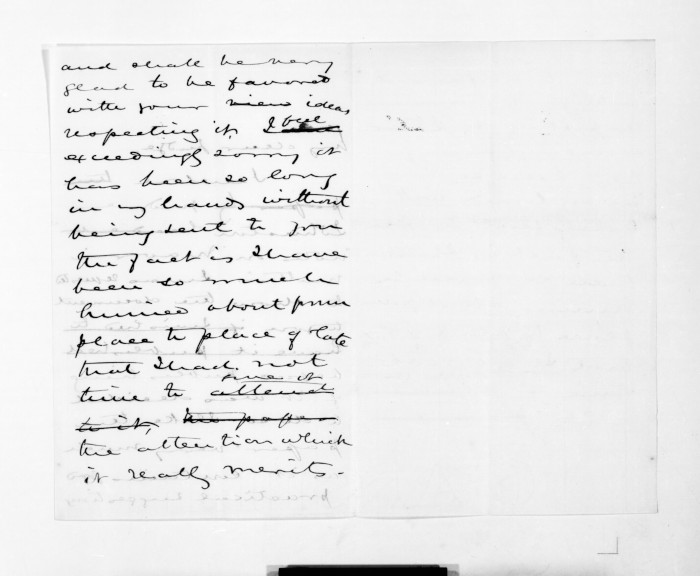 and shall be very
glad to be favored
with your view ideas
respecting it, I feel
exceedingly sorry it
has been so long
in my hands without
being sent to you
the fact is I have
been so much
hurried about from
place to place of late
that I had not
give it
time to attend
to it, the paper
the attention which
it really merits.